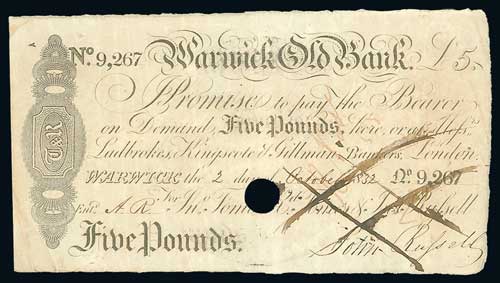 No. 9,267 Warwick Old Bank. £5
I Promise to pay the Bearer
on Demand, Five Pounds, here, or at Messrs.
Ladbrokes, Kingscote & Gillman Bankers, London.
WARWICK the 2 day of October 1832 No. 9,267
For Jno. Tomes Russell
Entd. A. R.
Five Pounds. John Russell
T&R